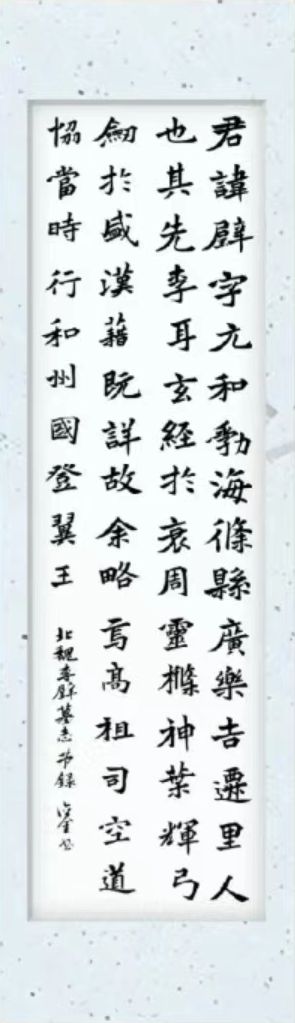 君諱辟字元和勃海條縣廣樂吉遷里人
也其先李耳玄經於衰周靈檦神葉輝弓
劔於盛漢藉既詳故余略焉高祖司空道
協當時行和州國登翼王
北魏李璧墓志节録 书